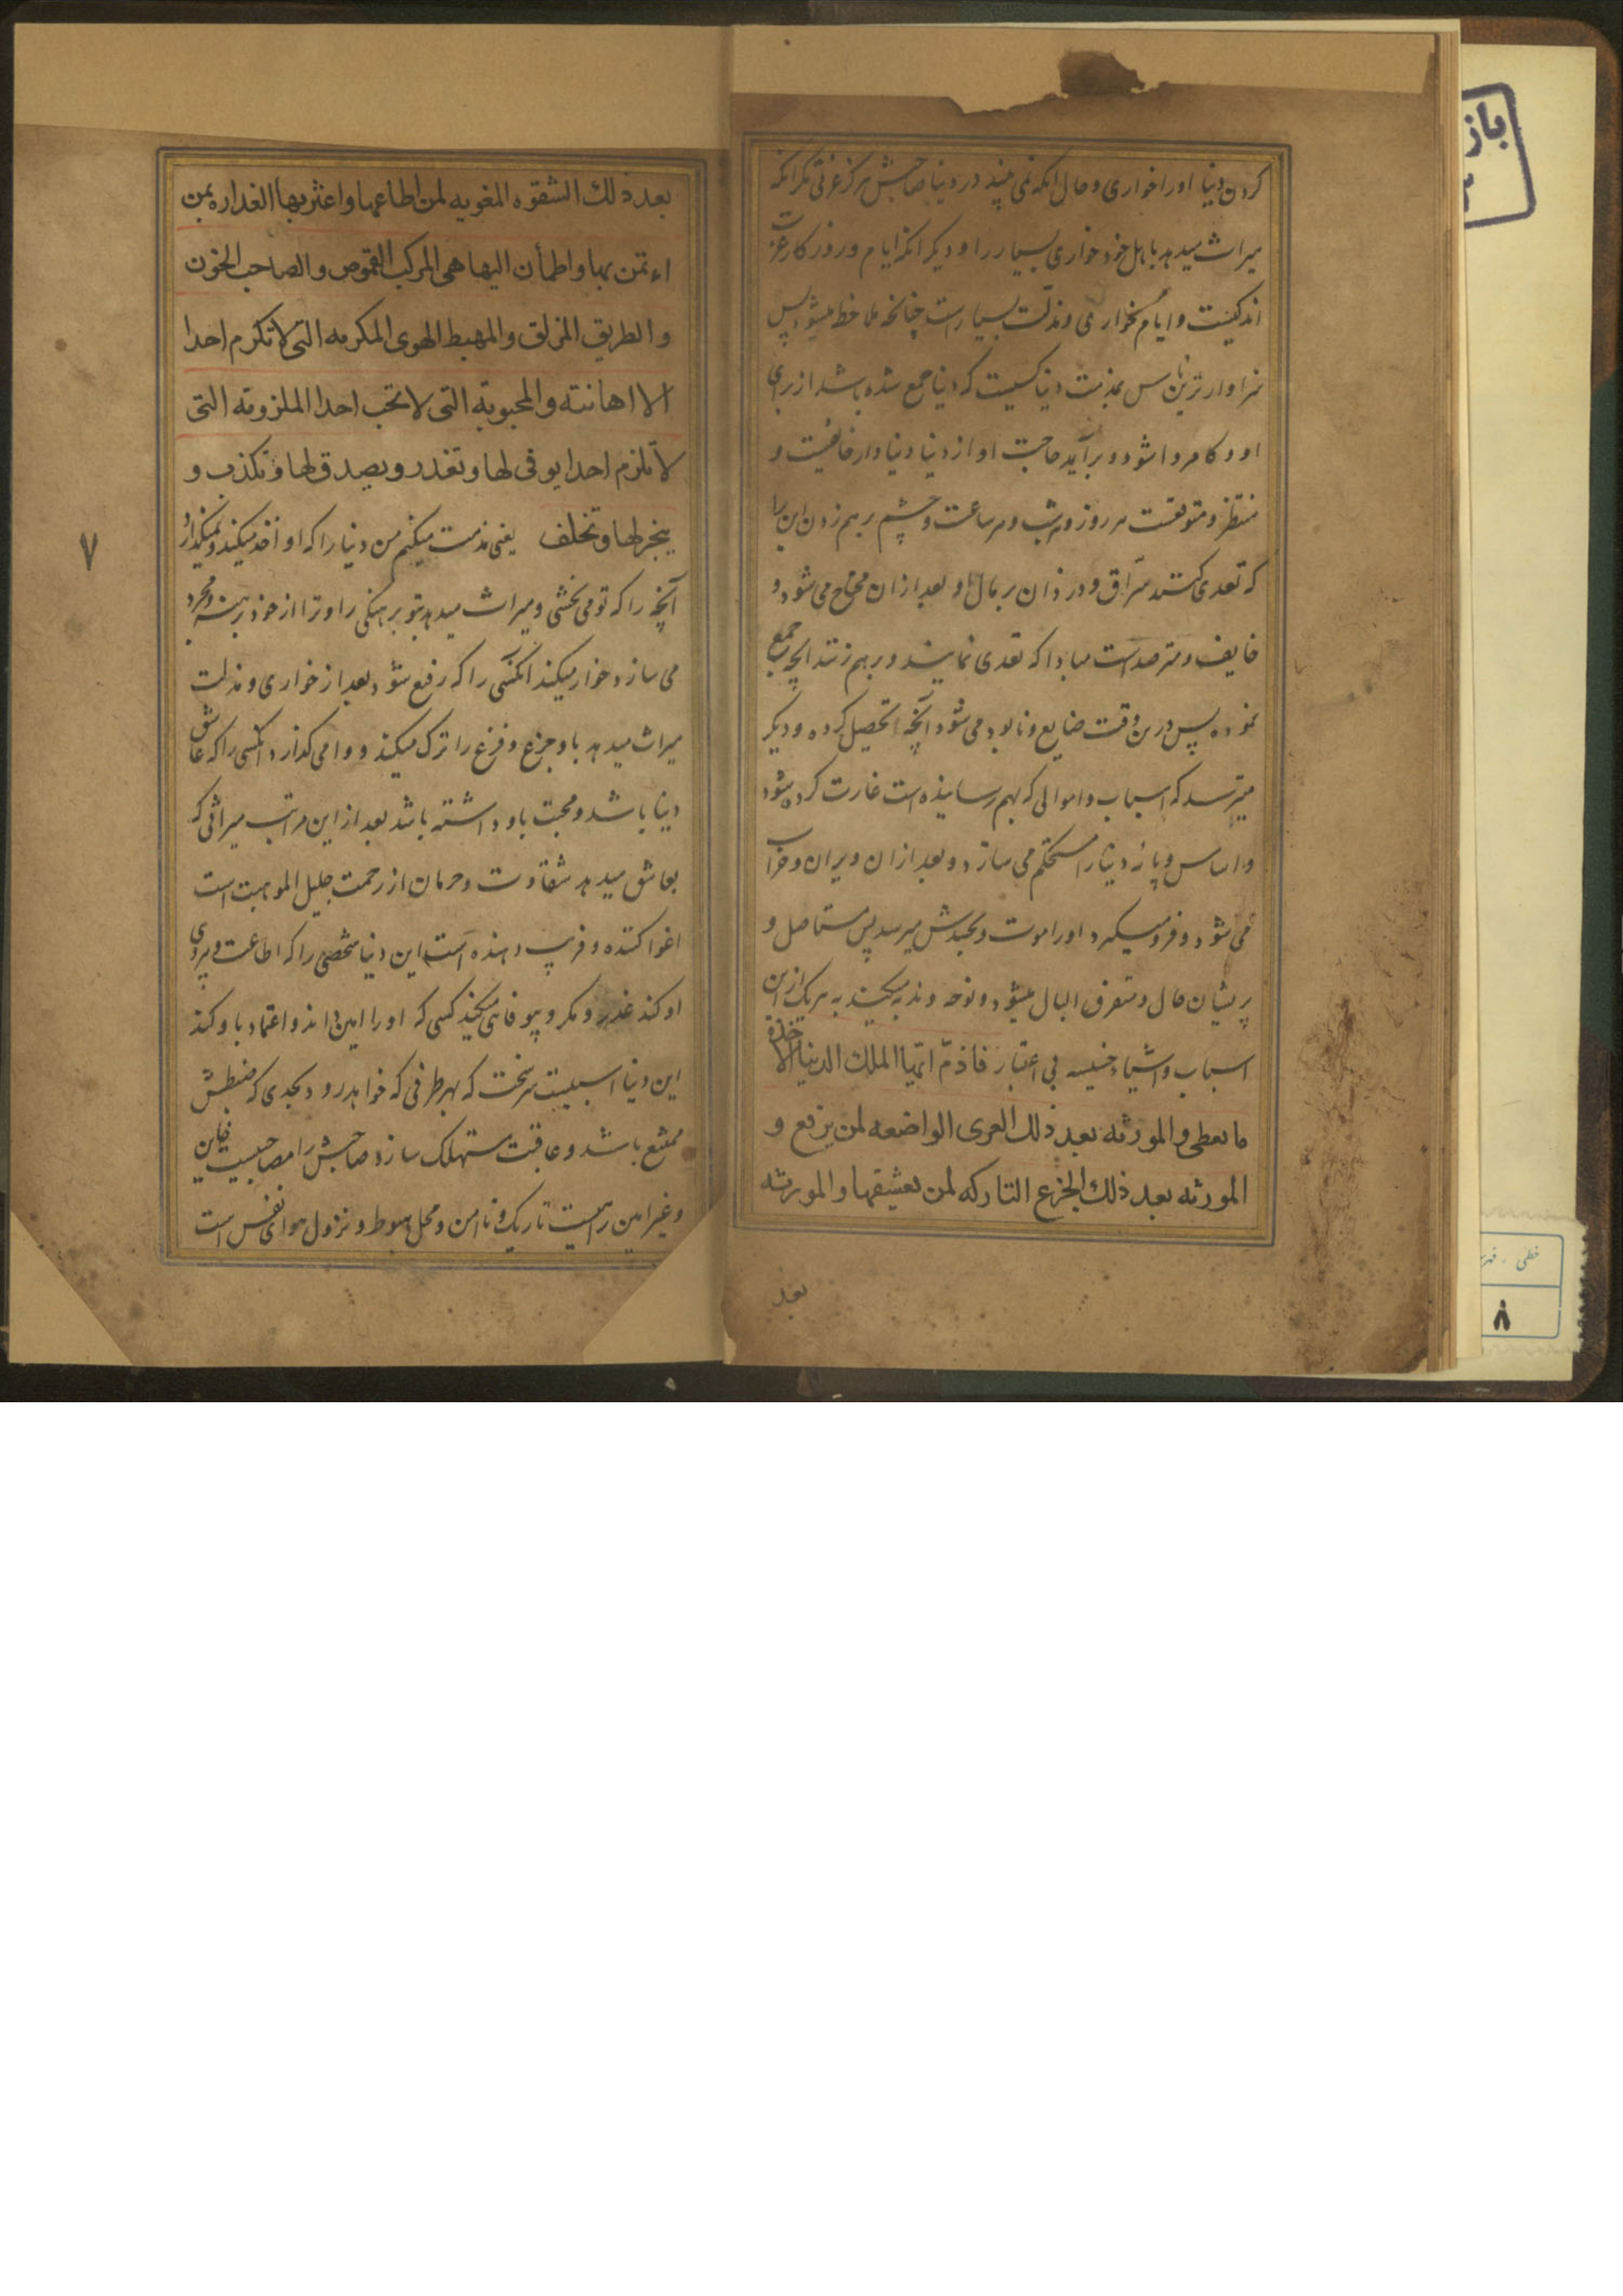 کردن دنیا اورا خواری و حال آنکه نمی بیند در دنیا صاحبش هرگز عزتی مگر آنکه
میراث میدهد باهل خود خواری بسیار را و دیگر آنکه ایام و روزگار عزت
اندکیست و ایام خواری و مذلت بسیار است چنانچه ملاحظه میشود پس
سزاوارترین ناس بمذمت دنیا کسیست که دنیا جمع شده باشد از برای
او و کامروا شود و برآید حاجت او از دنیا و دنیادار خائفیست و
منتظر و متوقعست هر روز و هر شب و هر ساعت و چشم برهم زدن این را
که تعدی کنند سراق و دزدان بر مال او بعد از ان محتاج می شود و
خایف و مترصد است مبادا که تعدی نمایند و برهم زنند آنچه جمع
نموده پس درین وقت ضایع و نابود می شود آنچه تحصیل کرده و دیگر
میترسد که اسباب و اموالی که بهم رسانیده است غارت کرده شود
و اساس و پایه دنیا را مستحکم می سازد و بعد ازان ویران و خراب
می شود و فرو میگیرد اورا موت و بجدش میرسد پس مستاصل و
پریشان حال و متفرق البال میشود و نوحه و ندبه میکند به هر یک ازین
اسباب و اشیاء خسیسه بی اعتبار فاذمّ ایّها الملک الدنیا الاخذة
ما یعطی و المورثه بعد ذلک العری الواضعه لمن یرفع و
المورثه بعد ذلک الجزع التارکه لمن یعشقها و المورثه
بعد
بعد ذلک الشقوه المغویه لمن اطاعها و اغتر بها الغداره بمن
ائتمن بها و اطمأن الیها هی المرکب القموص و الصاحب الخون
و الطریق المزلق و المهبط الهوی المکرمه التی لا تکرم احدا
الا اهانته و المحبوبة التی لا تحب احدا الملزومة التی
لا تلزم احدا یوفی لها و تغدر و یصدق لها و تکذب و
ینجز لها و تخلف یعنی مذمت میکنم من دنیا را که او اخذ میکند و نمیگذارد
آنچه را که تو می بخشی و میراث میدهد بتو برهنگی را و ترا از خود برهنه و مجرد
می سازد خوار میکند آنکسی را که رفیع شود بعد از خواری و مذلت
میراث میدهد باو جزع و فزع را ترک میکند و وامی گذارد آنکسی را که عاشق
دنیا باشد و محبت باو داشته باشد بعد از این مراتب میراثی که
بعاشق میدهد شقاوت و حرمان از رحمت جلیل الموهبت است
اغوا کننده و فریب دهنده است این دنیا شخصی را که اطاعت و پیروی
او کند غدر و مکر و بیوفائی میکند کسی که اورا امین داند و اعتماد باو کند
این دنیا اسبیست سرسخت که بهر طرفی که خواهد رود بحدی که ضبطش
ممتنع باشد و عاقبت مستهلک سازد صاحبش را مصاحبیست خاین
و غیر امین راهیست تاریک و ناامن و محل هبوط و نزول هوای نفس است
۷
باز
خطی - فهر
۸